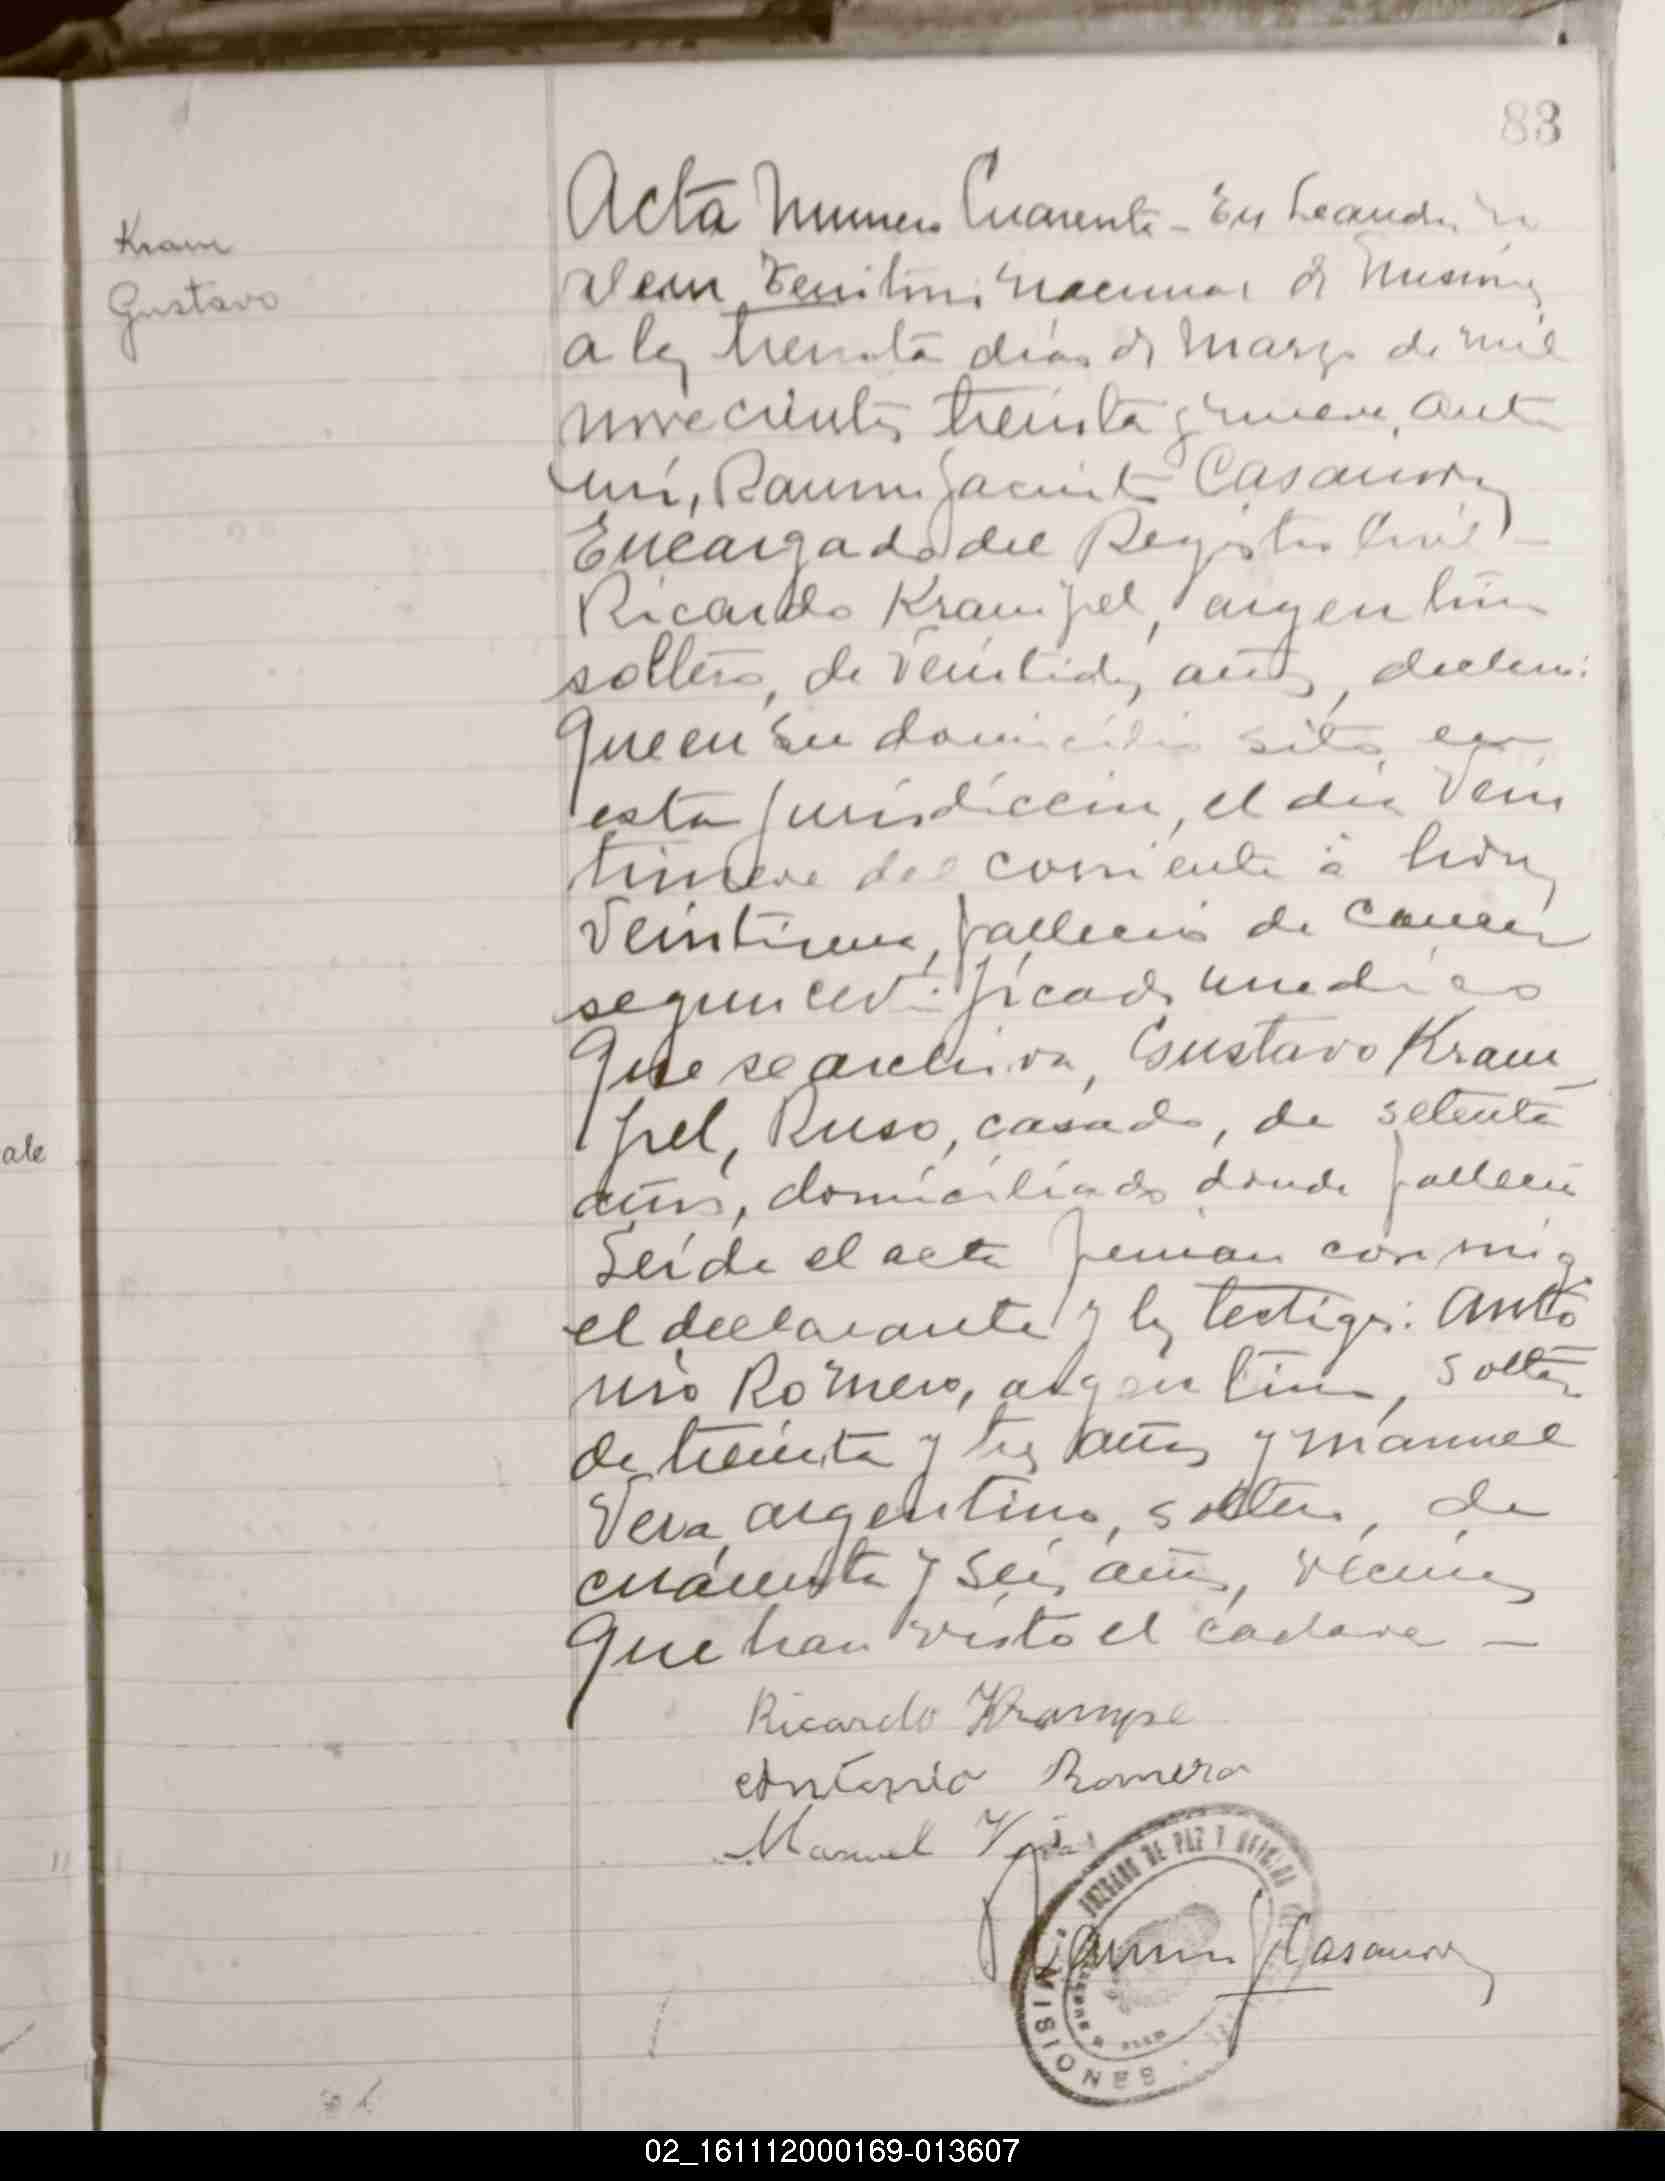 83
Kram
Gustavo
Acta Numero Cuarenta - En Leandro N
Alem Territorio Nacional de Misiones
a los treinta dias de Marzo de mil
novecientos treinta y nueve, ante
mi, Ramon Jacinto Casanova
Encargado del Registro Civil -
Ricardo Krampel, argentino
soltero, de veintidos años, declaró:
Que en su domicilio sito en
esta jurisdiccion, el dia vein
tinueve del corriente á horas
veintiuna, fallecio de cancer
segun certificado medico
Que se archiva, Gustavo Kram
pel, Ruso, casado, de setenta
años, domiciliado donde fallecio
Leida el acta firman conmigo
el declarante y los testigos: Anto
nio Romero, argentino, soltero
de treinta y tres años y Manuel
Vera, argentino, soltero, de
cuarenta y seis años, vecinos
Que han visto el cadaver -
Ricardo Krampel
Antonio Romero
Manuel Vera
Ramon J Casanova
JUZGADO DE PAZ Y OFICINA
MISIONES
ale
02_161112000169-013607